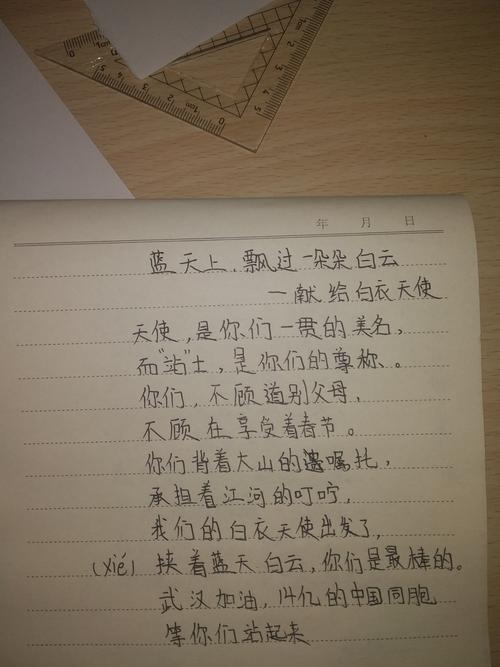 年 月 日
蓝天上,飘过一朵朵白云
—献给白衣天使
天使,是你们一贯的美名,
而"站"士,是你们的尊称。
你们,不顾道别父母,
不顾在享受着春节。
你们背着大山的嘱托,
承担着江河的叮咛,
我们的白衣天使出发了,
(xié) 挟着蓝天白云,你们是最棒的。
武汉加油,14亿的中国同胞
等你们站起来